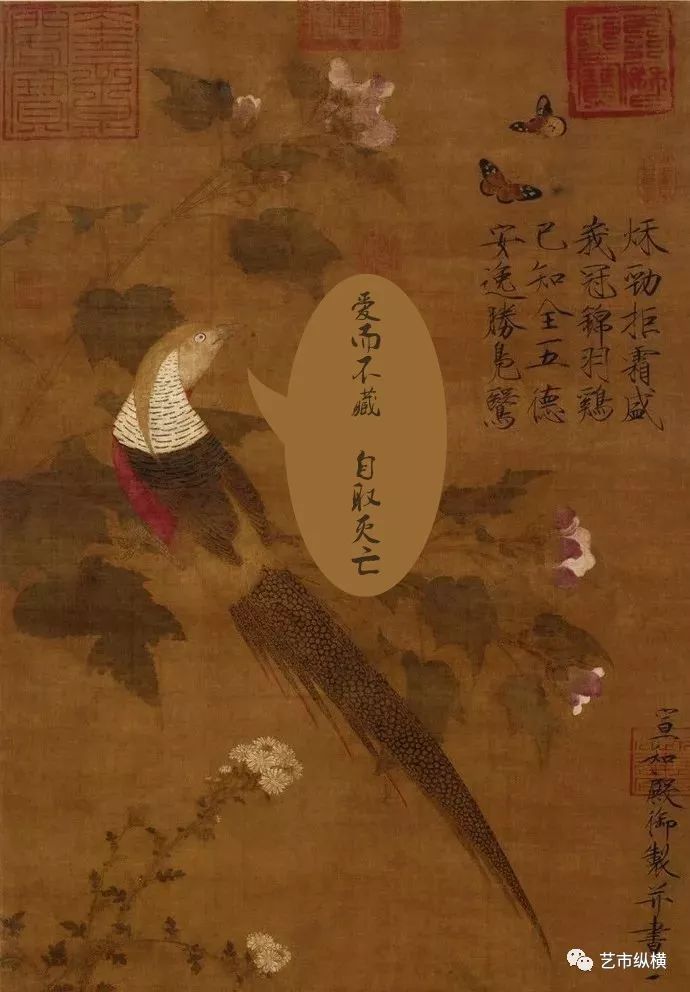 秋勁拒霜盛
峩冠錦羽鷄
已知全五德
安逸勝鳧鷖
爱而不藏 自取灭亡
宣和殿御製并書
艺市纵横